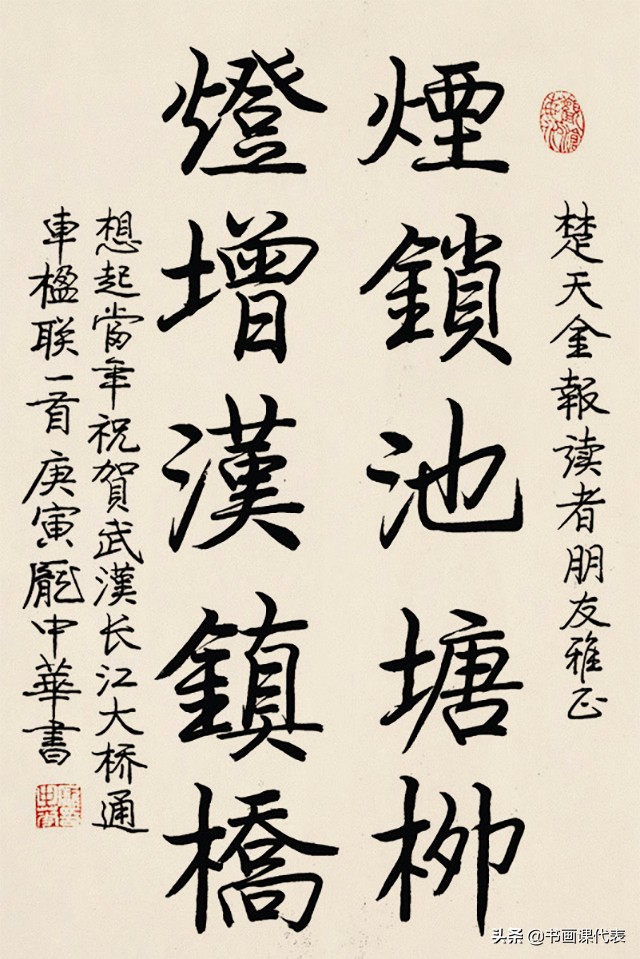 楚天金報读者朋友雅正
煙鎖池塘柳
燈增漢鎮橋
想起當年祝賀武漢长江大桥通
車楹联一首庚寅龐中華書
头条 @书画课代表